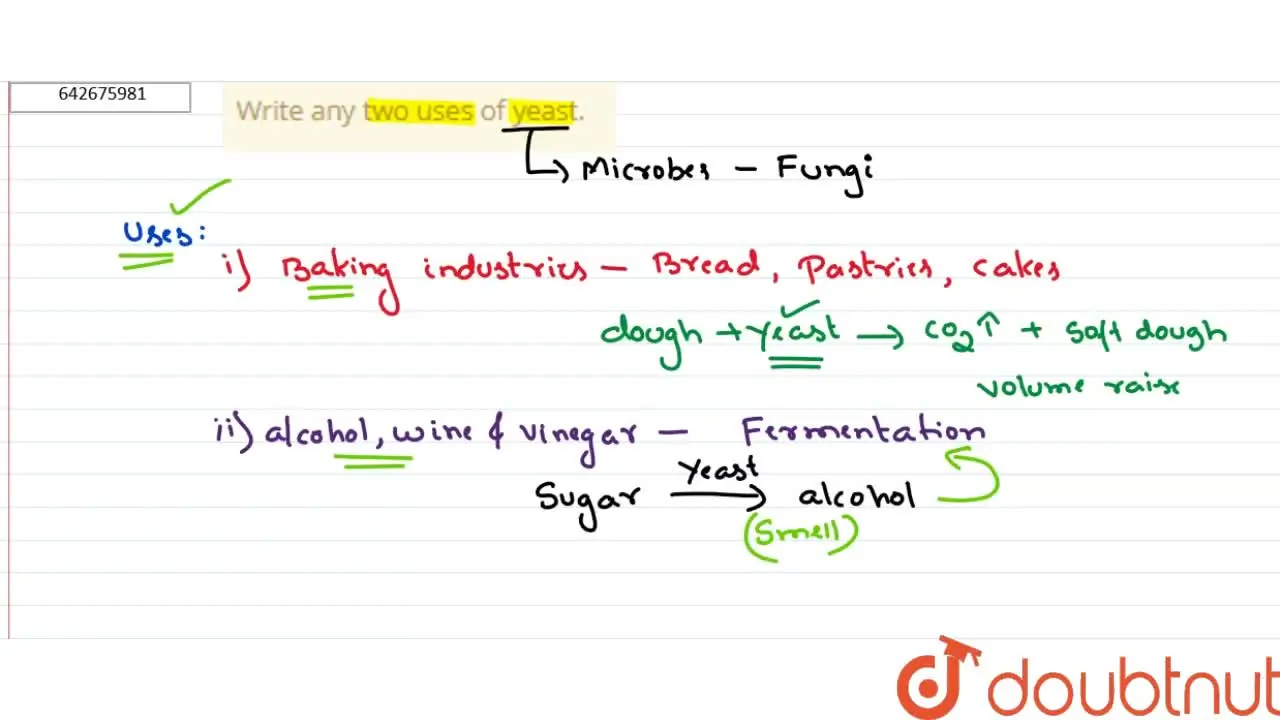 642675981
Write any two uses of yeast.
↳ Microbes - Fungi
Uses:
i) Baking industries - Bread, Pastries, cakes
dough + yeast → CO2↑ + soft dough
volume raise
ii) alcohol, wine & vinegar - Fermentation
Yeast
Sugar → alcohol
(Smell)
doubtnut